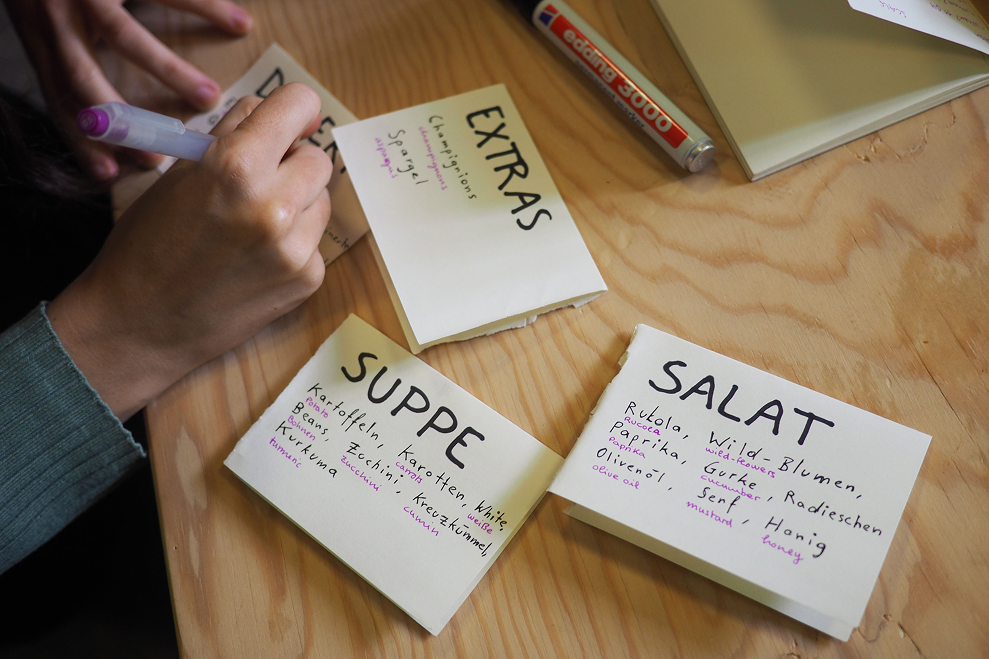 edding 3000
EXTRAS
Champignions
champignons
Spargel
asparagus
SUPPE
Kartoffeln, Karotten, White
Potato carrots weiße
Beans, Zuchini, Kreuzkümmel,
Bohnen zucchini cumin
Kurkuma
turmeric
SALAT
Rukola, Wild-Blumen,
Rucola wild-flowers
Paprika, Gurke, Radieschen
Paprika cucumber
Olivenöl, Senf, Honig
olive oil mustard honey